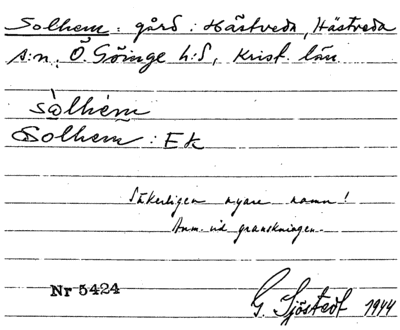 Solhem: gård: Hästveda, Hästveda
s:n, Ö. Göinge h:d, Krist. län
sòlhém
Solhem: Ek
Säkerligen nyare namn!
Anm. vid granskningen.
Nr 5424
G. Sjöstedt 1944